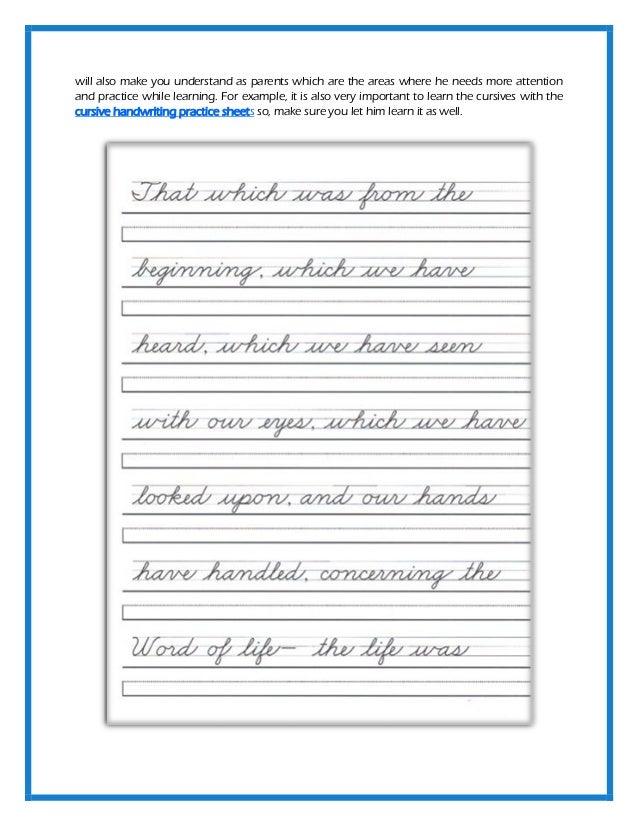 will also make you understand as parents which are the areas where he needs more attention
and practice while learning. For example, it is also very important to learn the cursives with the
cursive handwriting practice sheets so, make sure you let him learn it as well.
That which was from the
beginning, which we have
heard, which we have seen
with our eyes, which we have
looked upon, and our hands
have handled, concerning the
Word of life— the life was